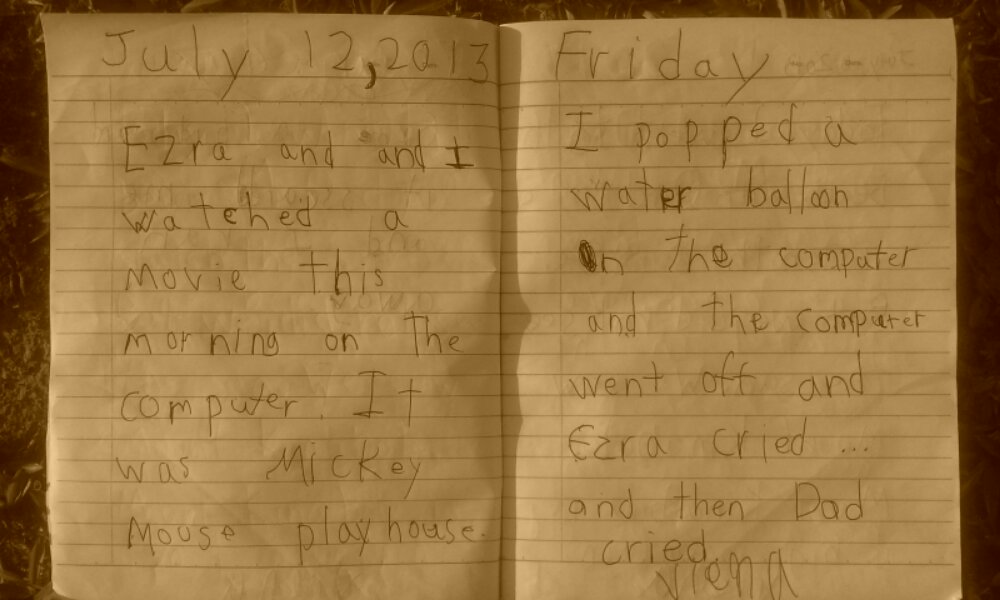 July 12, 2013
Ezra and and I
watched a
movie this
morning on the
computer. It
was Mickey
Mouse playhouse.
Friday
I popped a
water balloon
On the computer
and the computer
went off and
Ezra cried ...
and then Dad
cried.
Viena